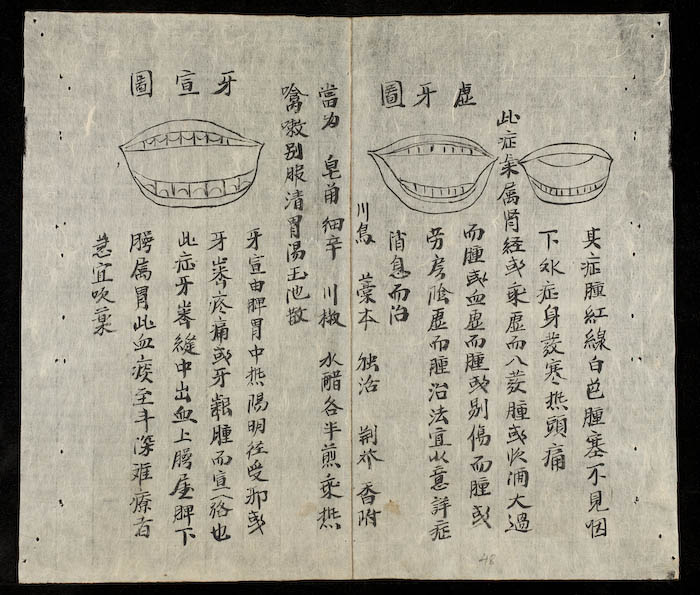 其症腫紅線白色腫塞不見咽
下外症身發寒热頭痛
虛牙圖
此症集属腎经或乘虛而入發腫或饮酒大過
而腫或血虛而腫或别傷而腫或
劳房陰虛而腫治法宜以意詳症
消息而治
川烏 藁本 独活 荆芥 香附
當为 皂角 细辛 川椒 水醋各半煎乘热
噙漱别服清胃湯玉池散
牙宣圖
牙宣由脾胃中热陽明径受邪或
疼痛或牙齦腫而宣露也
此症牙缝中出血上腭属脾下
腭属胃此血痰至年深难療者
宜吹藥
48